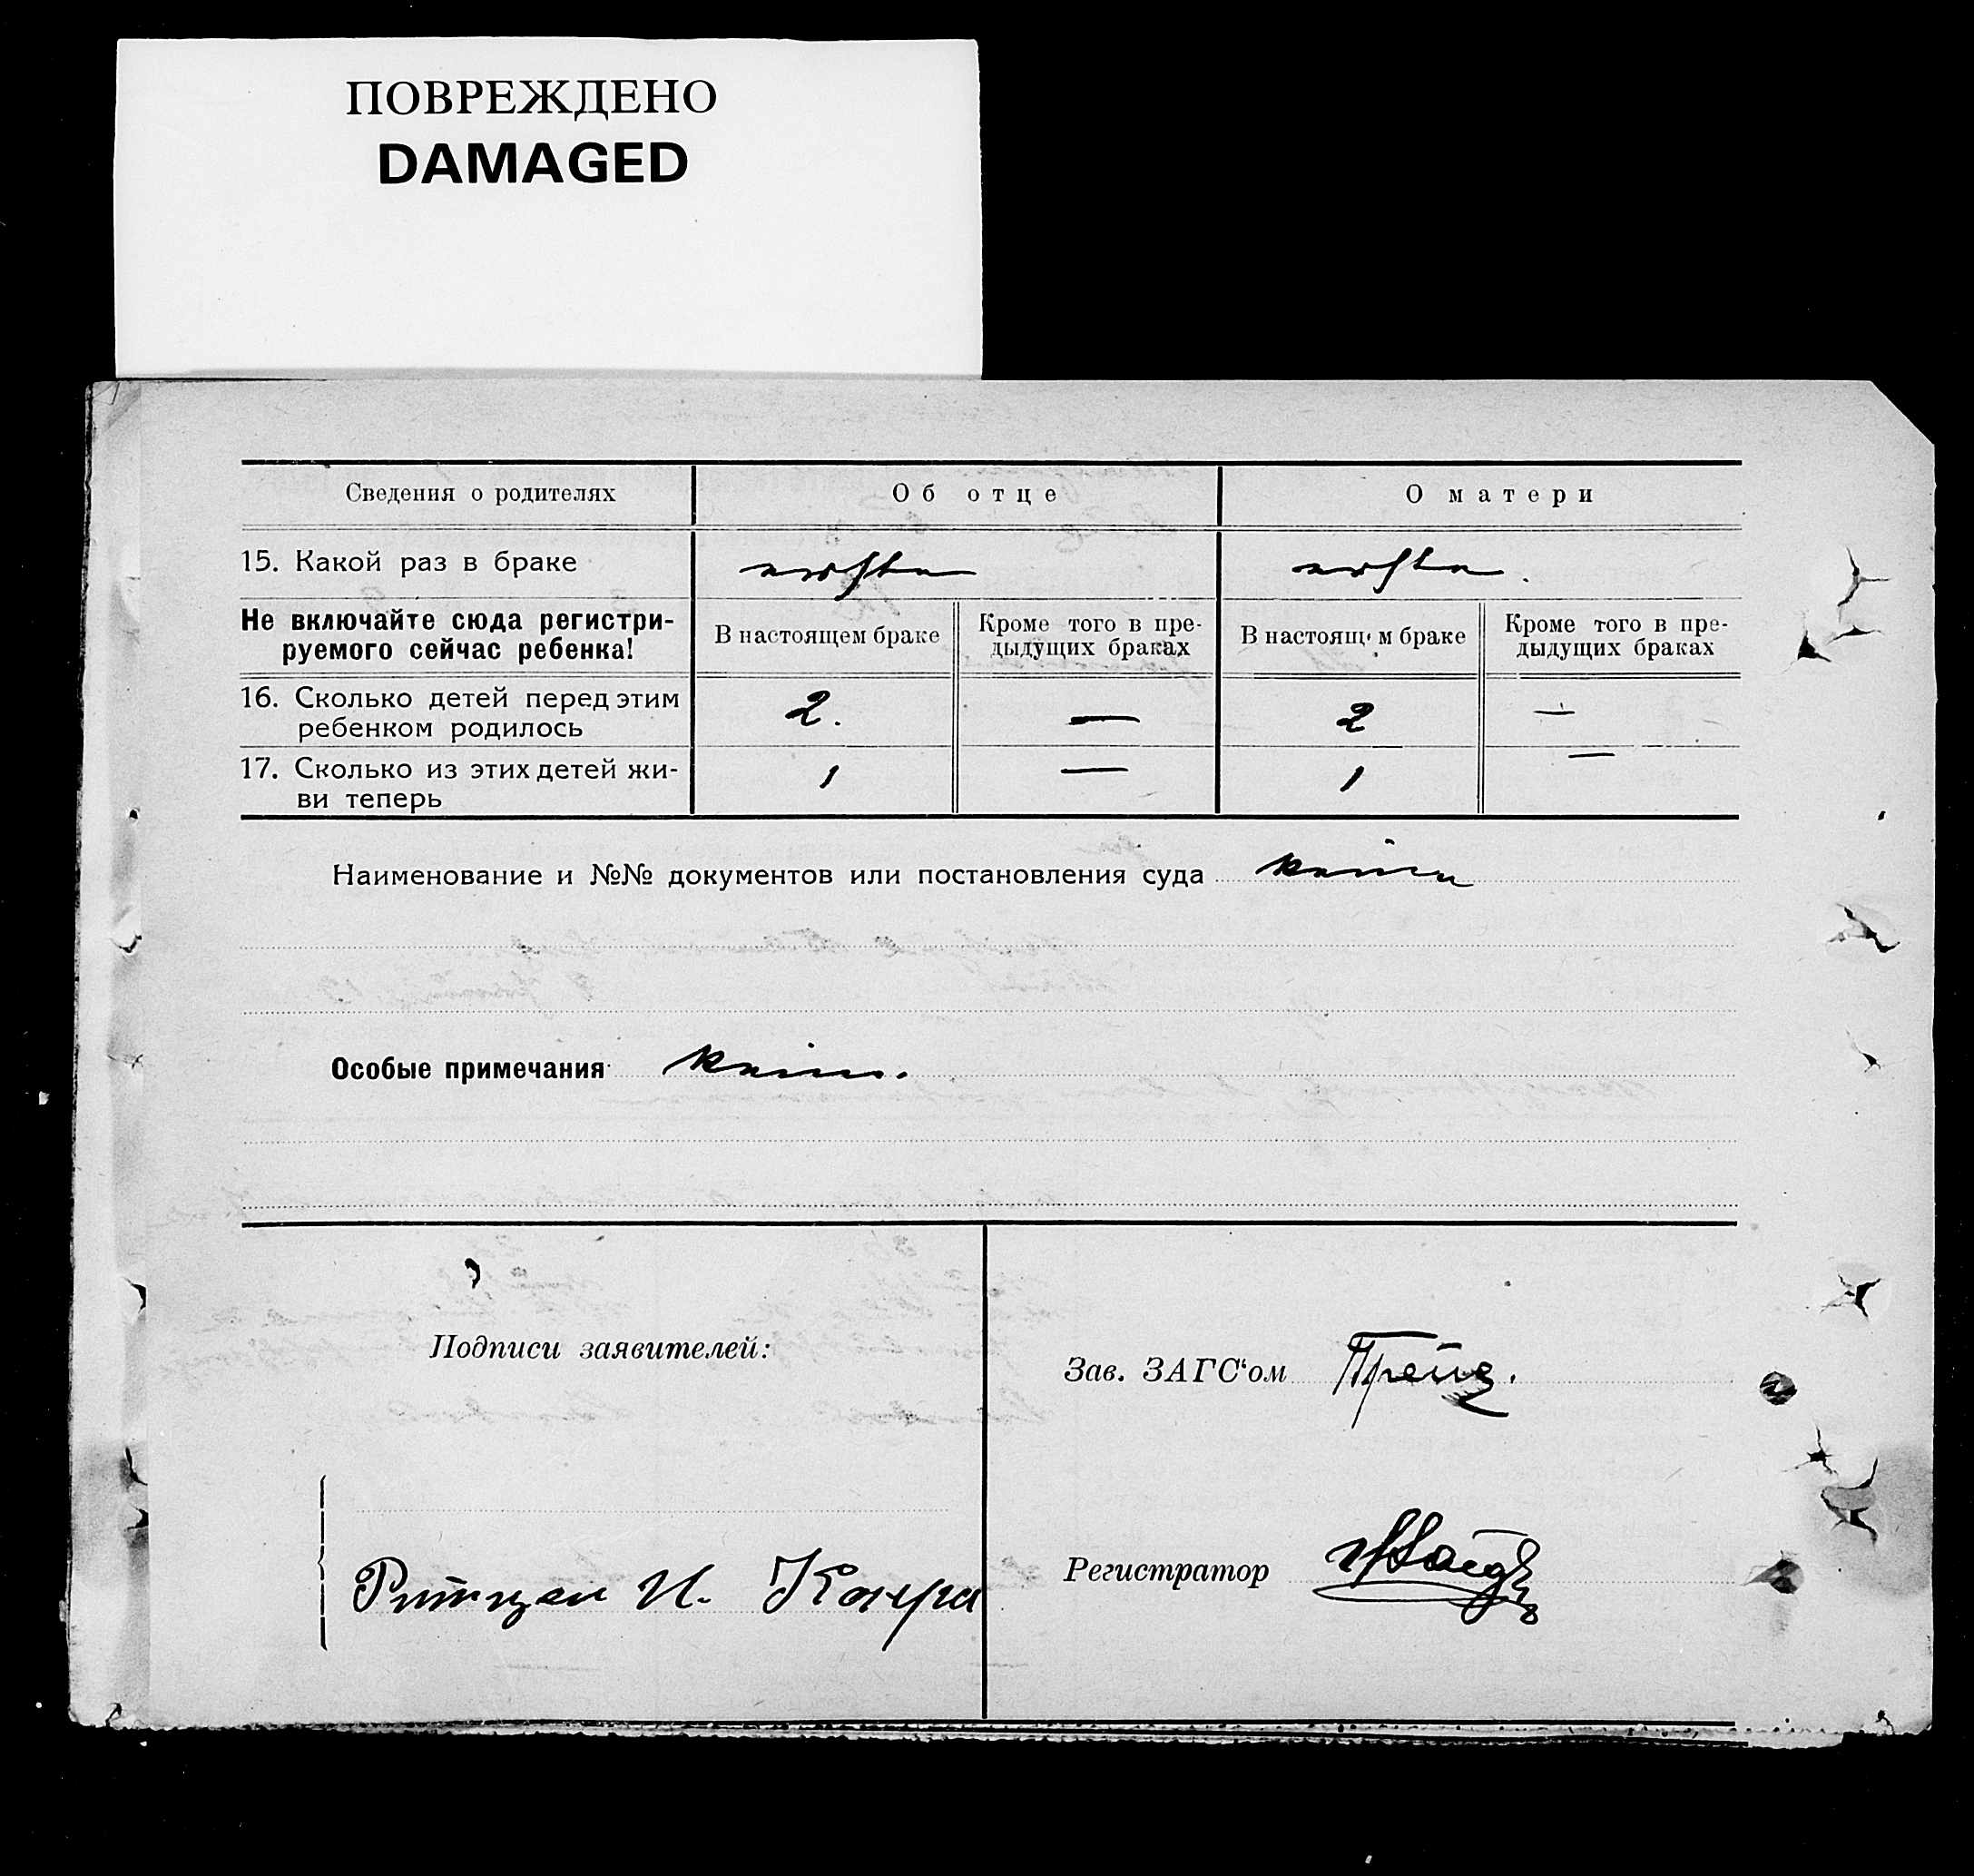 ПОВРЕЖДЕНО
DAMAGED
Сведения о родителях
Об отце
О матери
15. Какой раз в браке
erste
erste.
Не включайте сюда регистри-
руемого сейчас ребенка!
В настоящем браке
Кроме того в пре-
дыдущих браках
В настоящем браке
Кроме того в пре-
дыдущих браках
16. Сколько детей перед этим
ребенком родилось
2.
—
2
—
17. Сколько из этих детей жи-
ви теперь
1
—
1
—
Наименование и №№ документов или постановления суда keine
Особые примечания keine.
Подписи заявителей:
Зав. ЗАГС‘ом Прейс.
Регистратор
И.